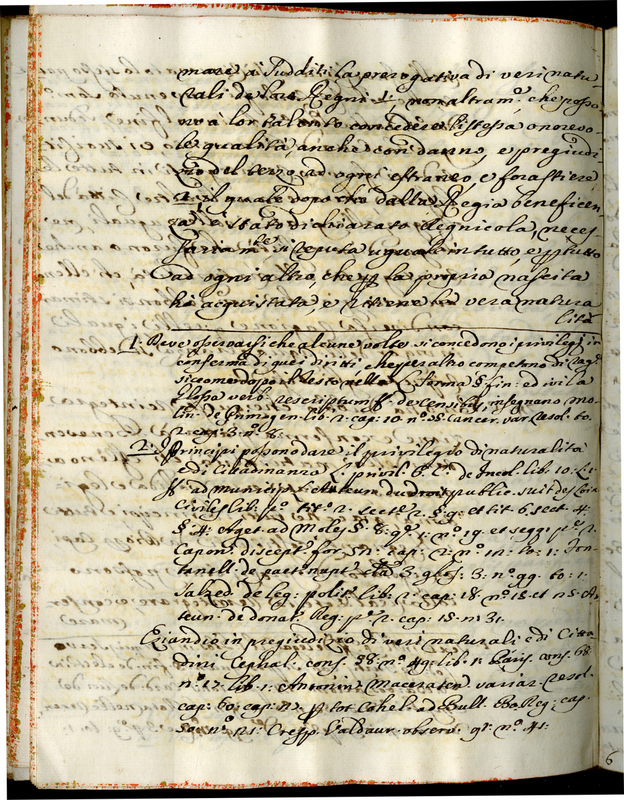 mare a Sudditi la prerogativa di veri natu-
rali de loro Regni non altram.e che posso
no a lor talento concedere l'istessa onorevo
le qualità, anche con danno, e pregiudi
zio del terzo ad ogni estraneo, e forastiere
il quale dopo che dalla Regia beneficen
za è stato dichiarato Regnicola, neces
sariam.te si reputa uguale in tutto e per tutto
ad ogni altro, che per la propria nascita
hà acquistata, e ritiene la vera natura
lità
1. Deve osservarsi che alcune volte si concedono i privilegi in
conferma di quei diritti che per altro competono di rag.e
siccome dopo il testo nella fin: ed ivi la
Glossa verb: rescriptum ff. de Censib; insegnano Mo-
lin: de Primogen: lib: 2: cap: 10 n.o Cancer. var: resol: to.
2: cap: 3: n.o 8:
2. I Principi possono dare il privilegio di naturalità
e di Cittadinanza de Incol. lib. 10.
ff. ad Municip: du droit public. suit des Loix
Civiles lib: p.o tit.o 2. sect. 2. §. 9: et tit. 6. sect. 4:
§. 4: Aget. ad Moles §. 8: n.o 19. et seqq:
Capon: discept: for: cap: n.o to: 1: Fon-
tanell: de pact: nupt: 3: glos: 3: n.o 99. to: 1:
Salzed. de leg: polit: lib: 2: cap: 18: n.o 18. et
de donat: Reg: p.o 2. cap: 15. n.o 31.
Eziandio in pregiudizio di veri naturali e di Citta
dini Cephal: cons. 58: n.o 49. lib. 1. Paris. cons. 68.
n.o 17. lib. 1: Antonin. Maceraten. variar: resol.
cap: 60: tot. ad Bull. Bo: Reg: cap.
50: n.o 21: Cresp. Valdaur. observ: n.o 41:
6